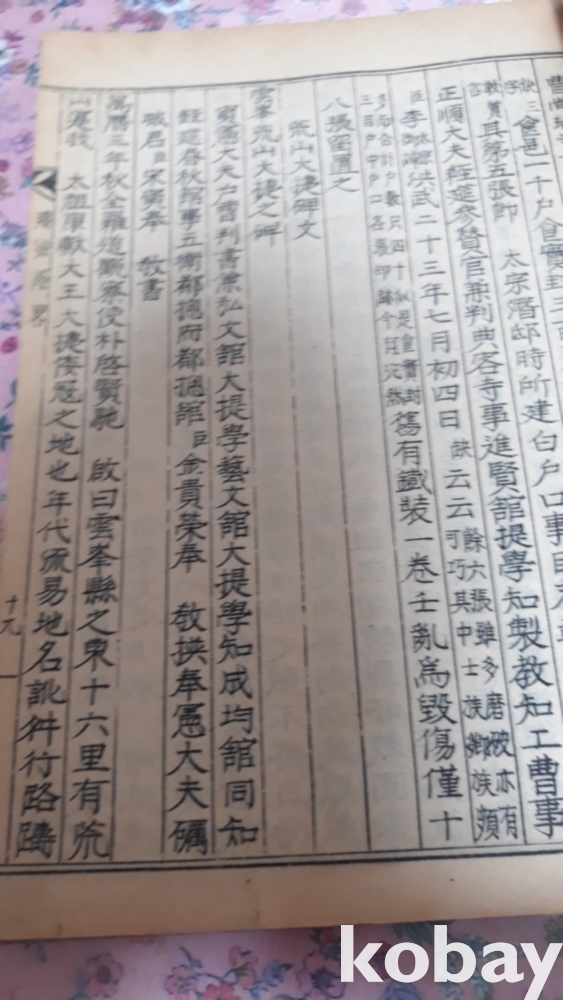 食邑一千戶食實封三
且第五張卽 太宗潛邸時所建白戶口事目
正順大夫經筵參贊官兼判典客寺事進賢館提學知製敎知工曹事
臣李 洪武二十三年七月初四日 缺 云云 餘六張雖多磨破亦有可巧其中士族鄕族類
多而合計戶數只四十似是食實封三百戶中戶口各張印跡今 舊有鐵裝一卷壬亂爲毀傷僅十
八張留置之
荒山大捷碑文
雲峯荒山大捷之碑
資憲大夫戶曹判書兼弘文館大提學藝文館大提學知成均館同知
經筵春秋館事五衛都摠府都摠館臣金貴榮奉 敎撰奉憲大夫礪
城君臣宋寅奉 敎書
萬曆三年秋全羅道觀察使朴啓賢馳 啟曰雲峯縣之東十六里有荒
山寔我 太祖康獻大王大捷倭寇之地也年代流易地名訛舛行路躊
十九
kobay